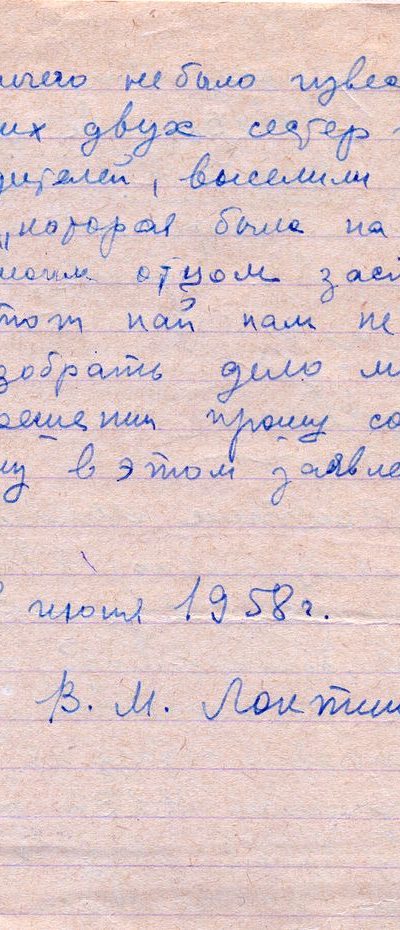 ничего не было извес
их двух сестер
дителей, выселили
которая была на
моим отцом зас
тот пай нам не
зобрать дело м
решении прошу со
му в этом заявле
июня 1958 г.
В. М. Локти